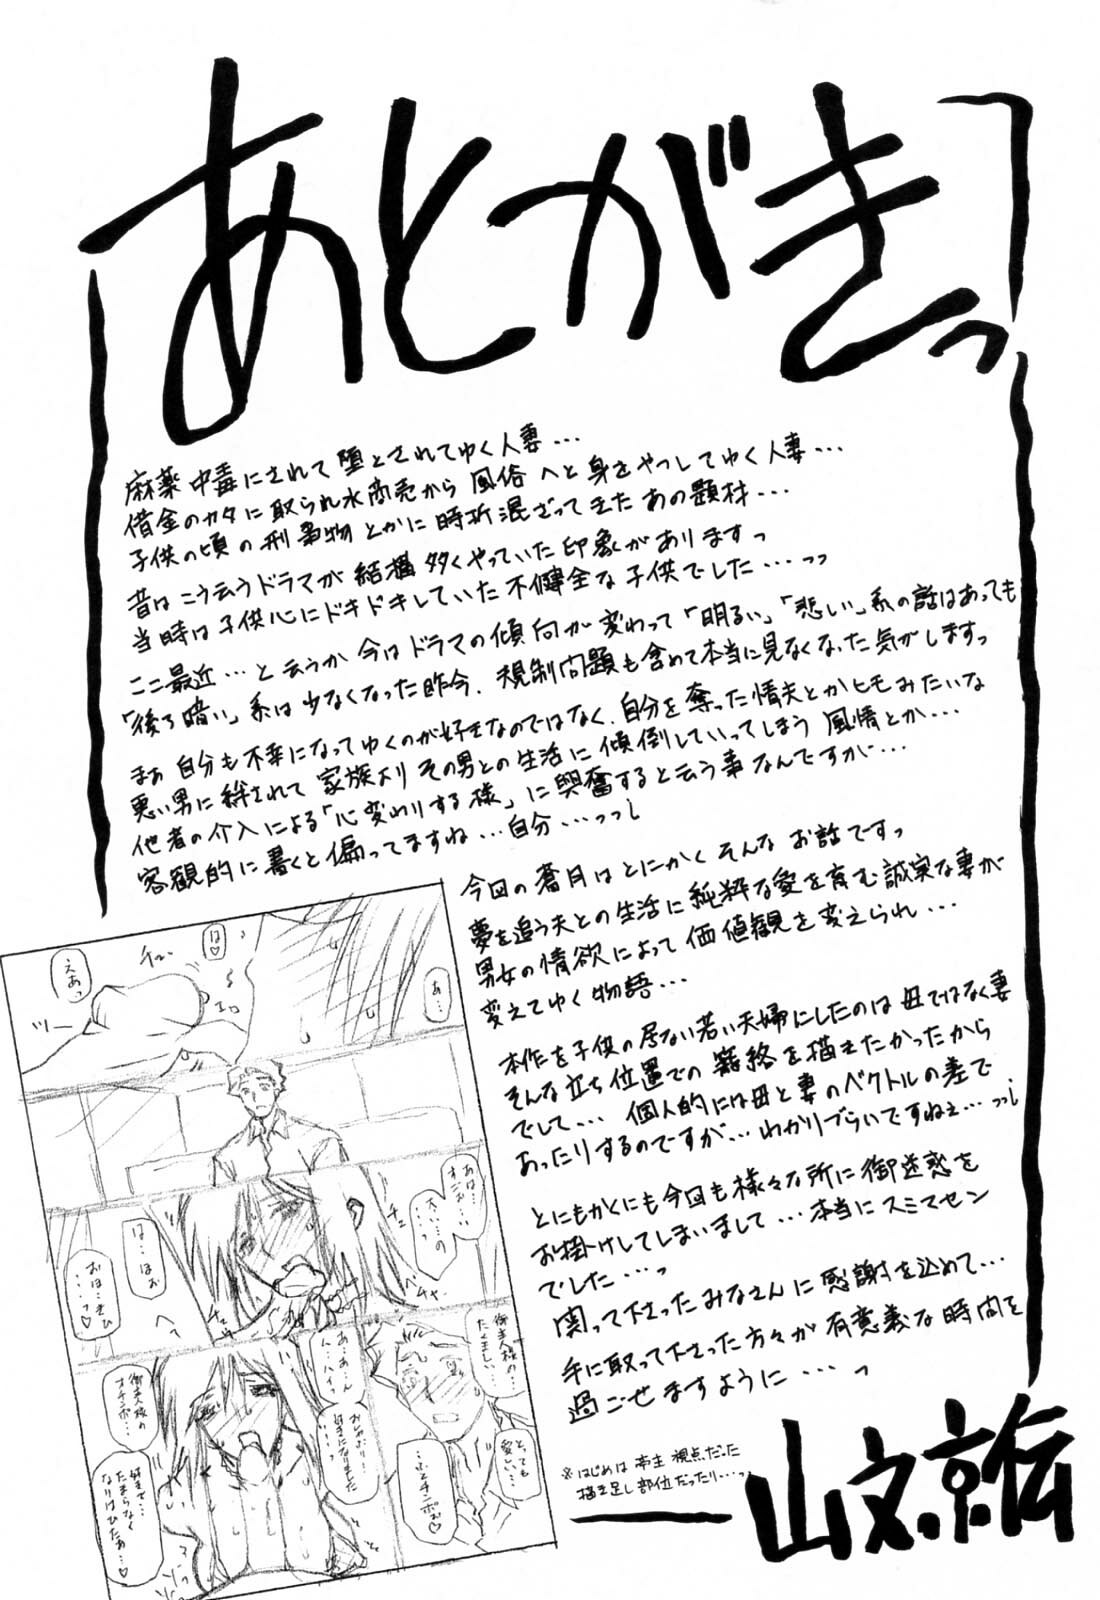 あとがきっ
麻薬中毒にされて堕とされてゆく人妻…
借金のカタに取られ水商売から風俗へと身をやつしてゆく人妻…
子供の頃の刑事物とかに時折混ざってきたあの題材…
昔はこう云うドラマが結構多くやっていた印象がありますっ
当時は子供心にドキドキしていた不健全な子供でした…っっ
ここ最近…と云うか今はドラマの傾向が変わって「明るい」「悲しい」系の話はあっても
「後ろ暗い」系は少なくなった昨今、規制問題も含めて本当に見なくなった気がしますっ
まぁ自分も不幸になってゆくのが好きなのではなく、自分を奪った情夫とかヒモみたいな
悪い男に絆されて家族よりその男との生活に傾倒していってしまう風情とか…
他者の介入による「心変わりする様」に興奮すると云う事なんですが…
客観的に書くと偏ってますね…自分…っっ
今回の蒼月はとにかくそんなお話ですっ
夢を追う夫との生活に純粋な愛を育む誠実な妻が
男女の情欲によって価値観を変えられ…
変えてゆく物語…
本作を子供の居ない若い夫婦にしたのは母ではなく妻
そんな立ち位置での籠絡を描きたかったから
でして…個人的には母と妻のベクトルの差で
あったりするのですが…わかりづらいですねぇ…っっ
とにもかくにも今回も様々な所に御迷惑を
お掛けしてしまいまして…本当にスミマセン
でした…っ
関って下さったみなさんに感謝を込めて…
手に取って下さった方々が有意義な時間を
過ごせますように…っ
※はじめは亭主視点だった
描き足し部位だったり…っ
山文京伝
あ…
は♡
チュ
えあっ
ツー
あは…
すごお…
大い…の
は…はお
おは…きひ
…っ♡
御主人様の…
たくましい…
とっても
愛しい…
あ…あ…ん
おゃぶり…
好きになりました
御主人様の
オチンポ…
好きで…
たまらなく
なりけひたぁ…♡